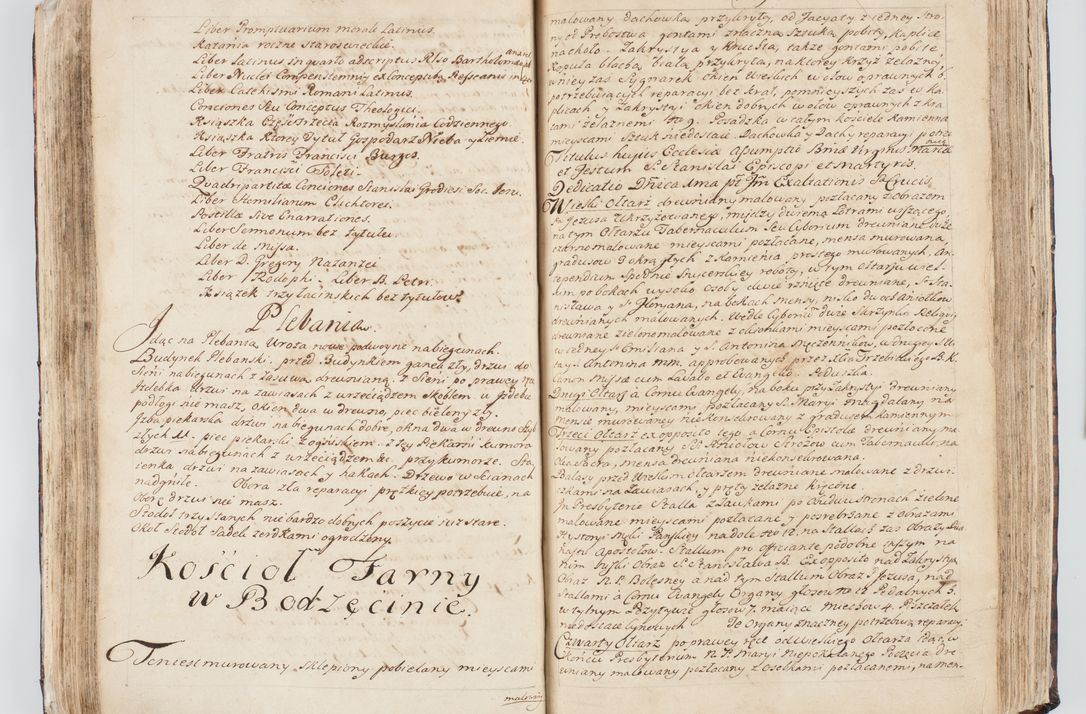 Liber Promptuarium morale Latinus.
Kazania roczne staroswieckie.
Liber Latinus in quarto adscriptus R. Iso Bartholom
Liber Nucler Compendemnij ex Conceptib9
Liber Catehismi Romani Latinus.
Conciones Seu Conceptus Theologici.
Książka Część trzecia Rozmyslania Codziennego.
Książka Ktorey Tytuł Gospodarz Nieba y Ziemie.
Liber Fratris Francisci Burges.
Liber Francisci Toleti.
Quadripartitæ Conciones Stanislai Grodiesi Soc. Jesu.
Liber Homiliarum Clichtores.
Postillæ Sive Enarrationes.
Liber Sermonum bez tytułu.
Liber de Missa.
Liber D. Gregory Nazanze
Liber Rodolphi. Liber B. Petri.
Książek trzy łacinskich bez tytułow.
Plebania.
Idąc na Plebanią Wrota nowe podwoyne na biegunach.
Budynek Plebanski. przed Budynkiem ganek zły, drzwi do
Sieni na biegunach z zasuwą drewnianą. z Sieni po prawey
Izdebka drzwi na zawiasach z wrzeciądzem Skoblem. w Izdebce
podłogi nie masz, Okien dwa w drewno, piec bielony zły.
Izba piekarnia drzwi na biegunach dobre, okna dwa w drewno
złych piec piekarski z ogniskiem. z tey Piekarni kumora
drzwi na biegunach z wrzeciądzem &c przy kumorze. Sta,
ienka drzwi na zawiasach, y hakach. Drzewo w scianach
nadgniłe. Obora zła reparacyi prętkiey potrzebuie, na
Oborę drzwi nie masz.
Stodoł trzy Starych nie bardzo dobrych poszycie iuz stare.
Okoł Stodoł Sadek zerdkami ogrodzony.
Kościoł Farny
w Bodzęcinie.
Ten iest murowany sklepiony pobielany mieyscami
malowany
malowany dachowką przykryty, od Facyaty z iedney Stro,
ny od Probostwa gontami znaczna Sztuka pobita, Kaplice
na około. Zakrystya y Kruchta, takze gontami pobite.
Kopuła blachą białą przykryta, na ktorey krzyz zelazny,
w niey zas Sygnarek. Okien Wielkich w ołow oprawnych 6.
potrzebuiących reparacyi bez krat, pomnieyszych zas w ka,
plicach y Zakrystyi okien dobrych w ołow oprawnych z kra,
tami zelaznemi No 9. Posadzka w całym kosciele kamienna
mieyscami Sztuk niedostaie Dachowka y Dachy reparacyi potrze
buie
Titulus huius Ecclesiæ Assumptio Bmæ Virginis Mariæ
et Festum S. Stanislai Episcopi et Martyris.
Dedicatio Dnica 1ma pt Fm Exaltationis S. Crucis.
Wielki Ołtarz drewniany malowany pozłacany z obrazem
P. Jezusa Ukrzyzowanego, między dwiema Łotrami wiszącego,
na tym Ołtarzu Tabernaculum seu Cyborium drewniane duze
czarno malowane mieyscami pozłacane, mensa murowana,
gradusow 9 okrągłych z kamienia prostego murowanych, An,
tependium Snycerskiey roboty, w tym ołtarzu wiel,
kim po bokach wysoko osoby dwie rznięte drewniane, S. Sta,
nisława y S. Floryana, na bokach mensy, nisko dwoch Aniołkow
drewnianych malowanych. Wedle Cyborii dwie Skrzynki Religij
drewniane zielono malowane z obrobkami mieyscami pozłocone
w iedney S. Emiliana y S. Antonina męczennikow, w drugiey SS.
Antonina mm. approbowanych przez Xdza Trzebickiego B. K.
Canon Missæ cum Lavabo et Evangelio. Poduszka.
Drugi Ołtarz a Cornu Evangely, na boku przy Zakrystyi drewniany
malowany, mieyscami pozłacany S. Maryi Magdaleny na
mensie murowaney niekonsekrowany z gradusem kamiennym.
Trzeci Ołtarz ex opposito tego a Cornu Epistolæ drewniany ma,
lowany pozłacany SS. Aniołow Strozow cum Tabernaculo sta
mensa drewniana niekonsekrowana.
Balasy przed Wielkim Ołtarzem drewniane malowane z drzwi,
czkami na zawiasach, y pręty zelazne kręcone.
In Presbyterio Stalla z ławkami po obudwu Stronach zielono
malowane mieyscami pozłacane, y posrebrzane z obrazami
Hystoryi Męki Panskiey na dole No 12. na Stallach zas obrazy dwu
nastu Apostołow. Stallum pro Officiante podobne inszym na
nim bylki Obraz S. Stanisława B. Ex opposito nad Zakrystyą
Obraz N. P. Bolesney a nad tym Stallum Obraz P. Jezusa, nad
Stallami a Cornu Evangely Organy głosow No 12 Pedalnych 5.
w tylnym Pozytywie głosow 7. maiąc Miechow 4. Piszczałek
niedostaie cynowych Te Organy znaczney potrzebuią reparacyi
Czwarty Ołtarz po prawey ręce od wielkiego Ołtarza Idąc w
Końcu Presbyterium N. P. Maryi Niepokalanego Poczęcia dre,
wniany malowany pozłacany z Osobkami pozłacanemi, na men,